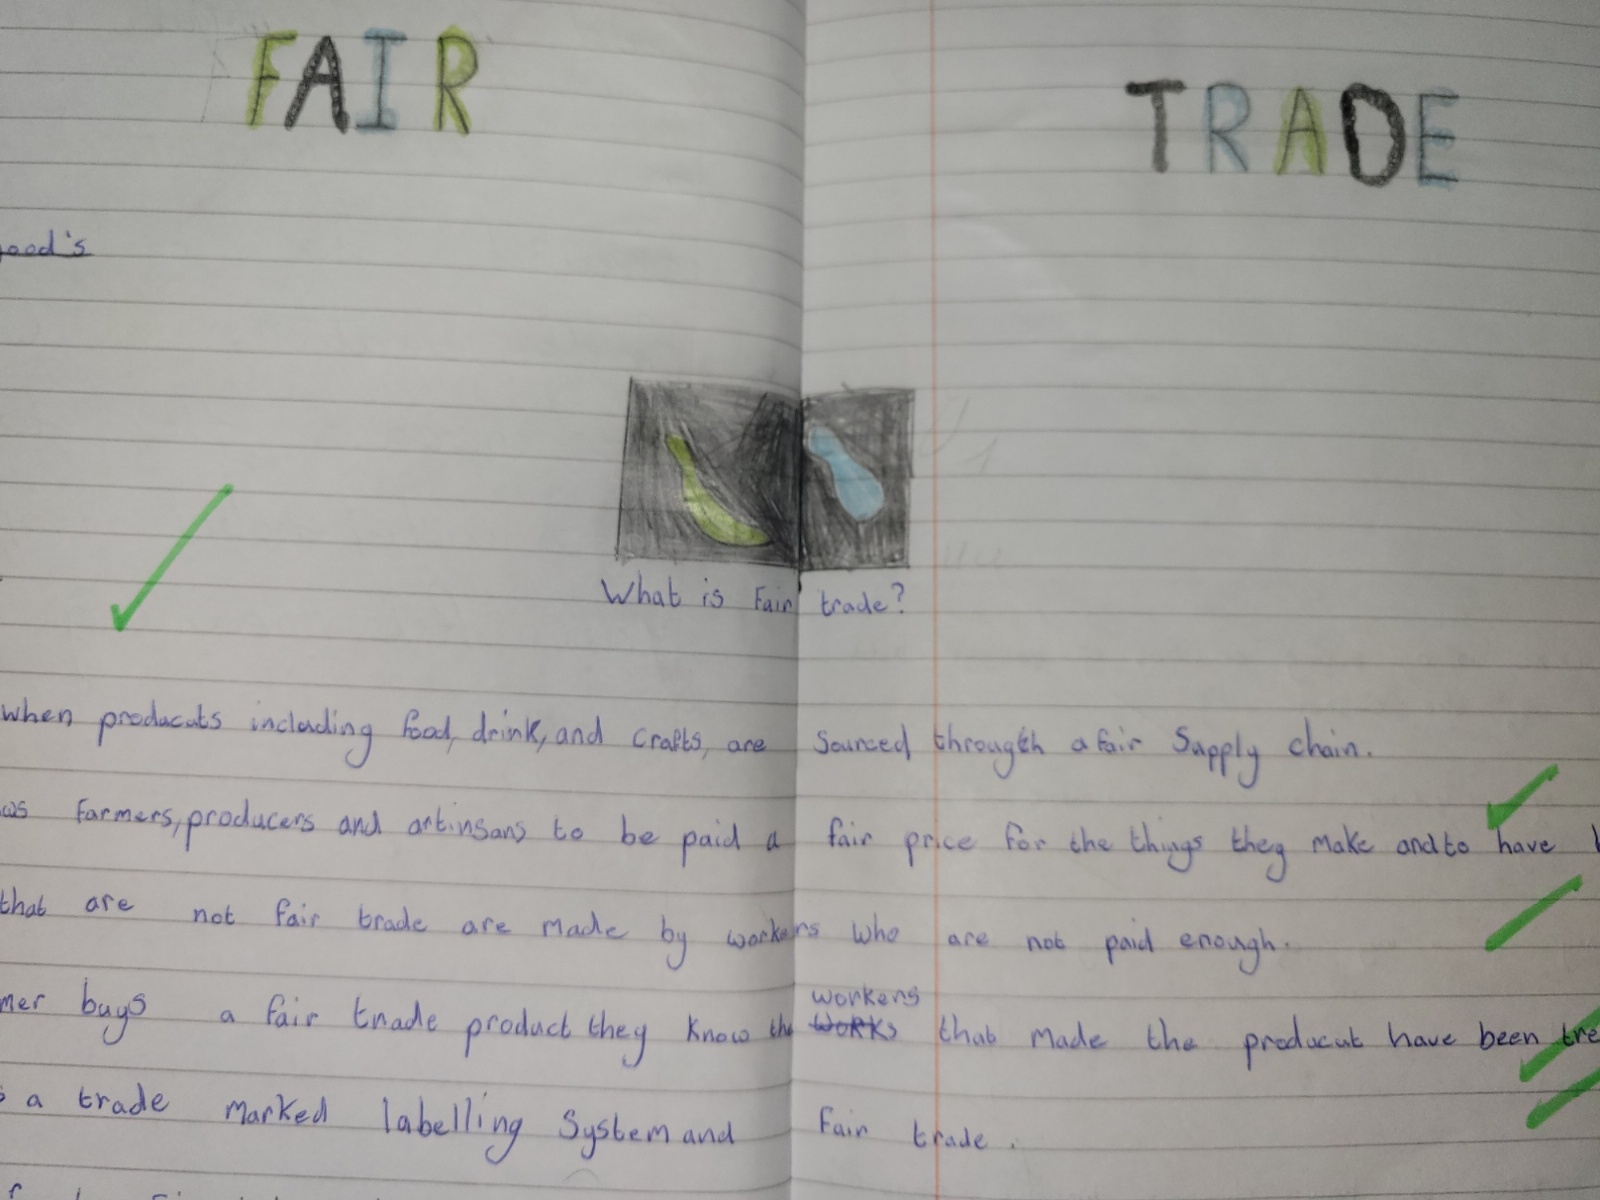 FAIR TRADE
ood's
What is Fair trade?
when producats including food, drink, and crafts, are sourced througth a fair supply chain.
ws farmers, producers and artinsans to be paid a fair price for the things they make and to have
that are not fair trade are made by workers who are not paid enough.
workers
mer buys a fair trade product they know the works that made the producat have been tre
s a trade marked labelling system and fair trade.